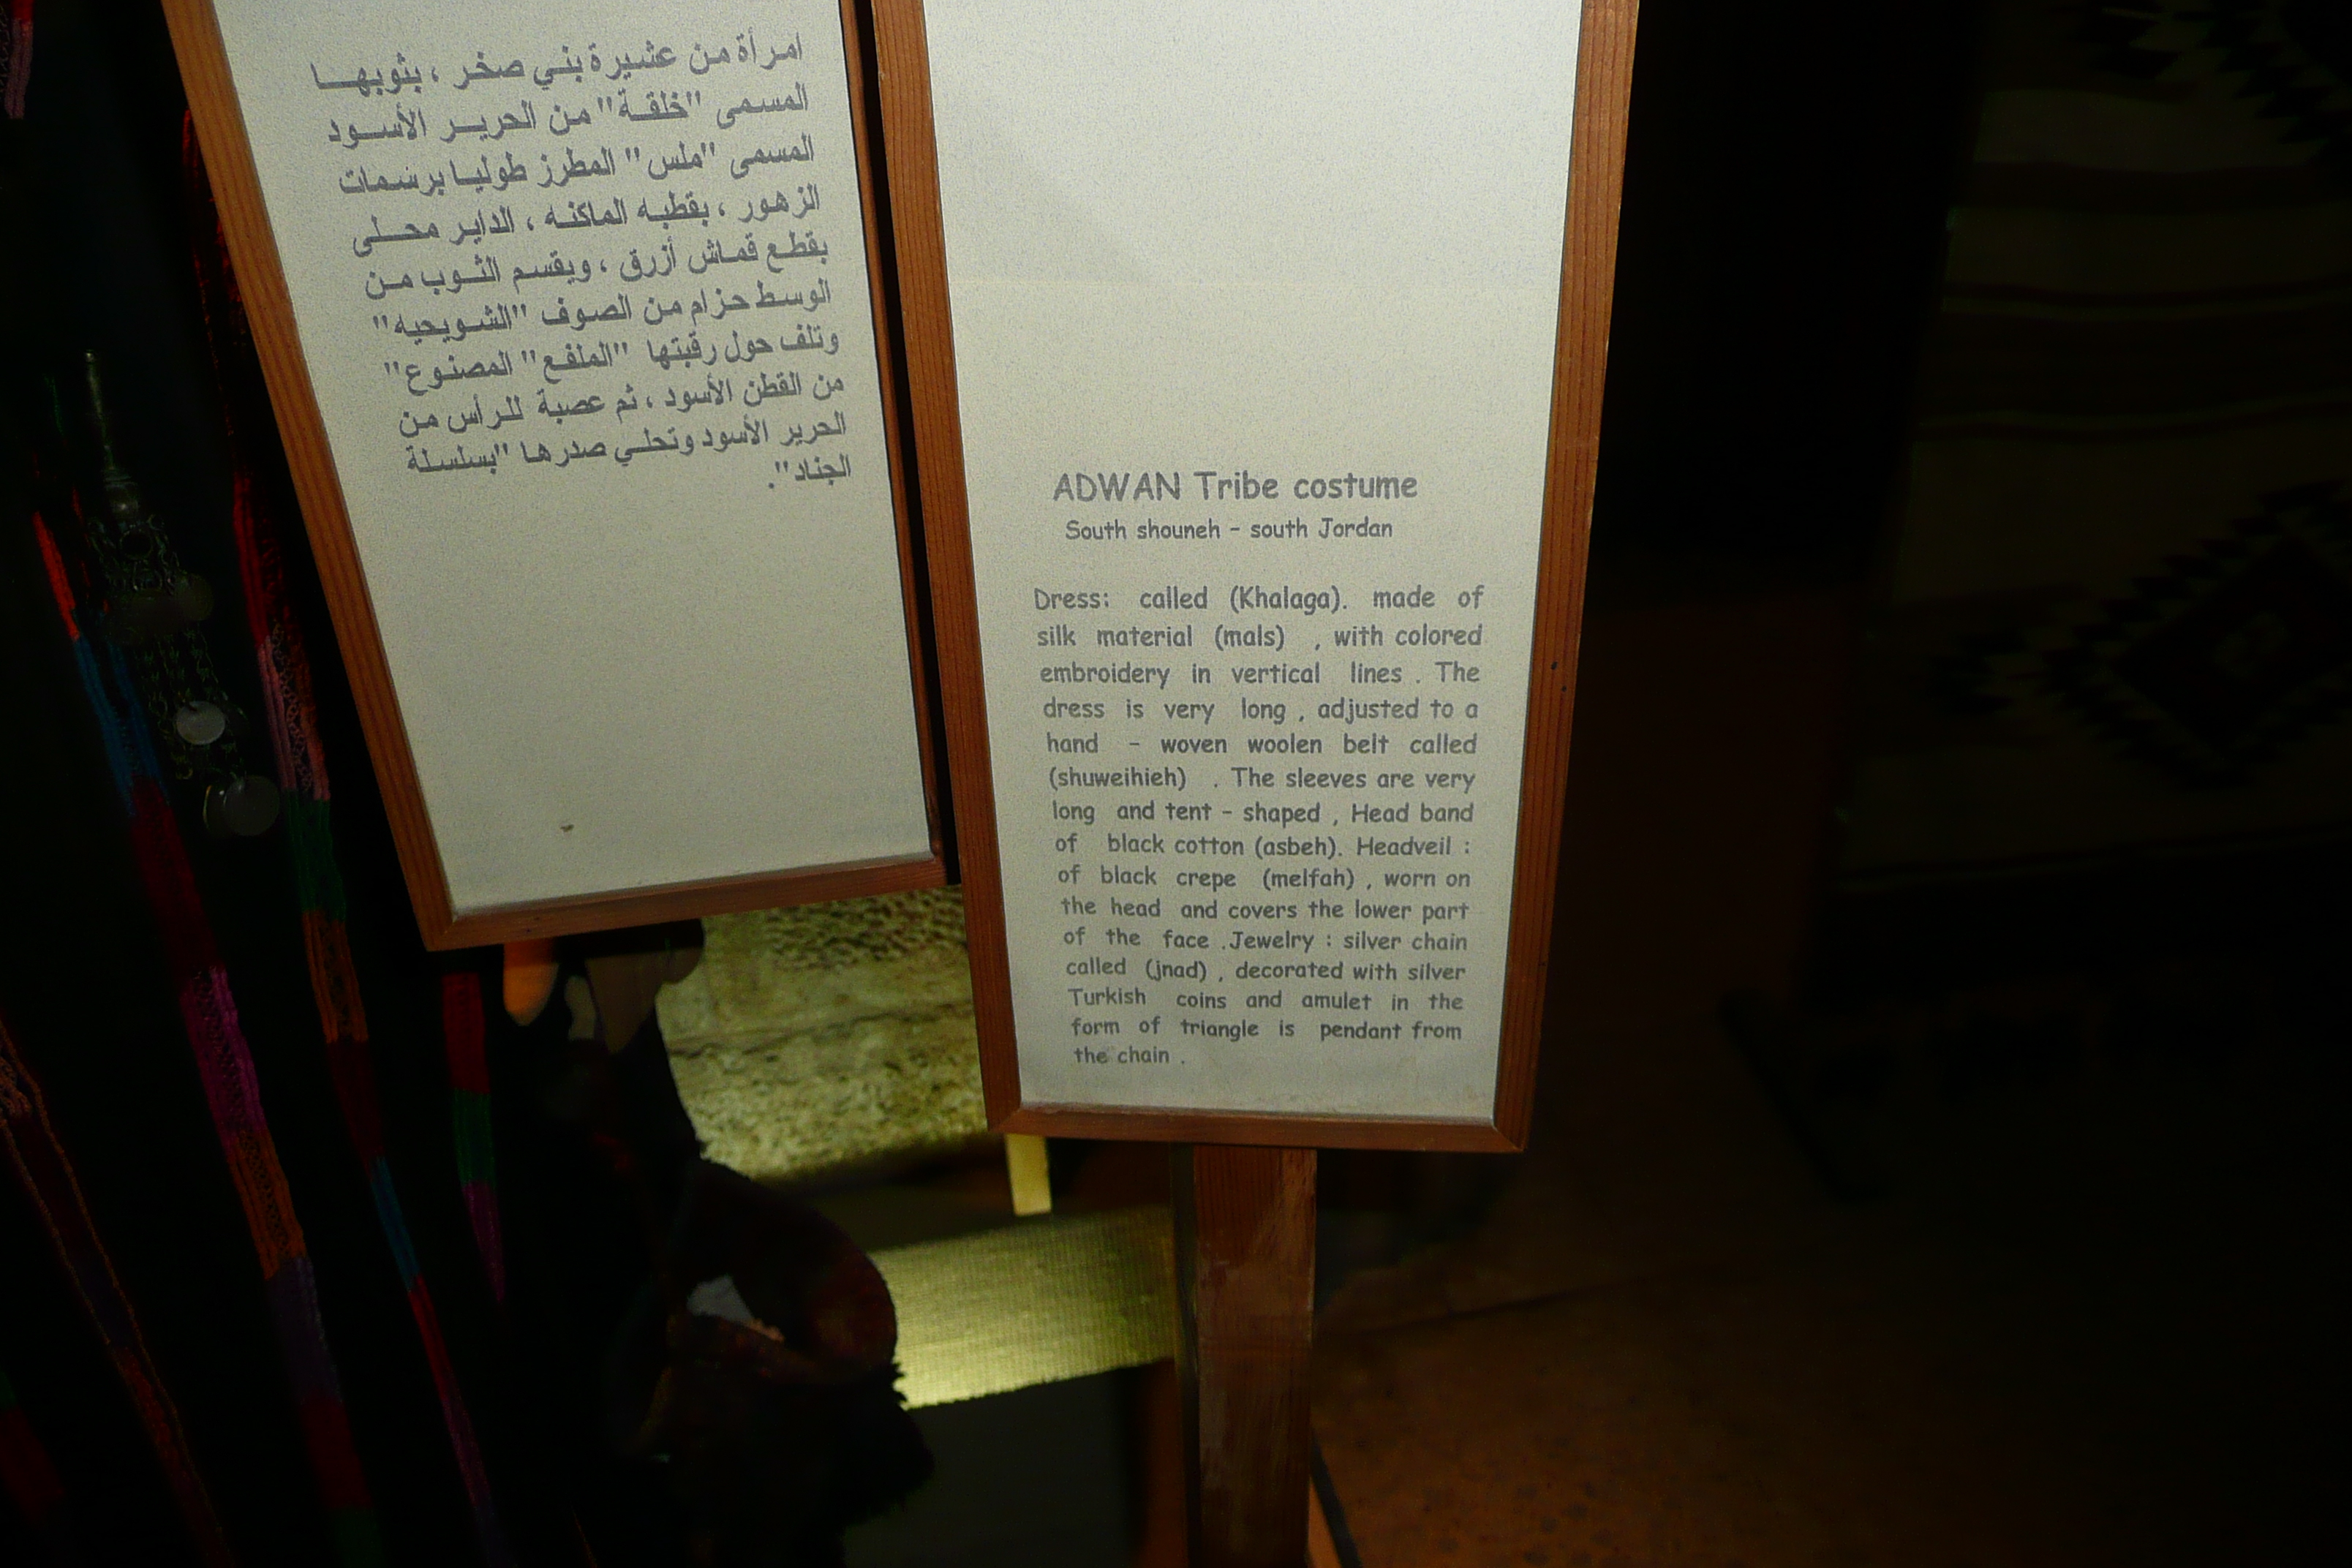 امرأة من عشيرة بني صخر ، بثوبها
المسمى "خلقة" من الحرير الأسود
المسمى "ملس" المطرز طوليا برسمات
الزهور ، بقطبه الماكنه ، الداير محلى
بقطع قماش أزرق ، ويقسم الثوب من
الوسط حزام من الصوف "الشويحيه"
وتلف حول رقبتها "الملفع" المصنوع"
من القطن الأسود ، ثم عصبة للرأس من
الحرير الأسود وتحلي صدرها "بسلسلة
الجناد".
ADWAN Tribe costume
South shouneh – south Jordan
Dress: called (Khalaga). made of
silk material (mals) , with colored
embroidery in vertical lines . The
dress is very long , adjusted to a
hand – woven woolen belt called
(shuweihieh) . The sleeves are very
long and tent – shaped , Head band
of black cotton (asbeh). Headveil :
of black crepe (melfah) , worn on
the head and covers the lower part
of the face .Jewelry : silver chain
called (jnad) , decorated with silver
Turkish coins and amulet in the
form of triangle is pendant from
the chain .